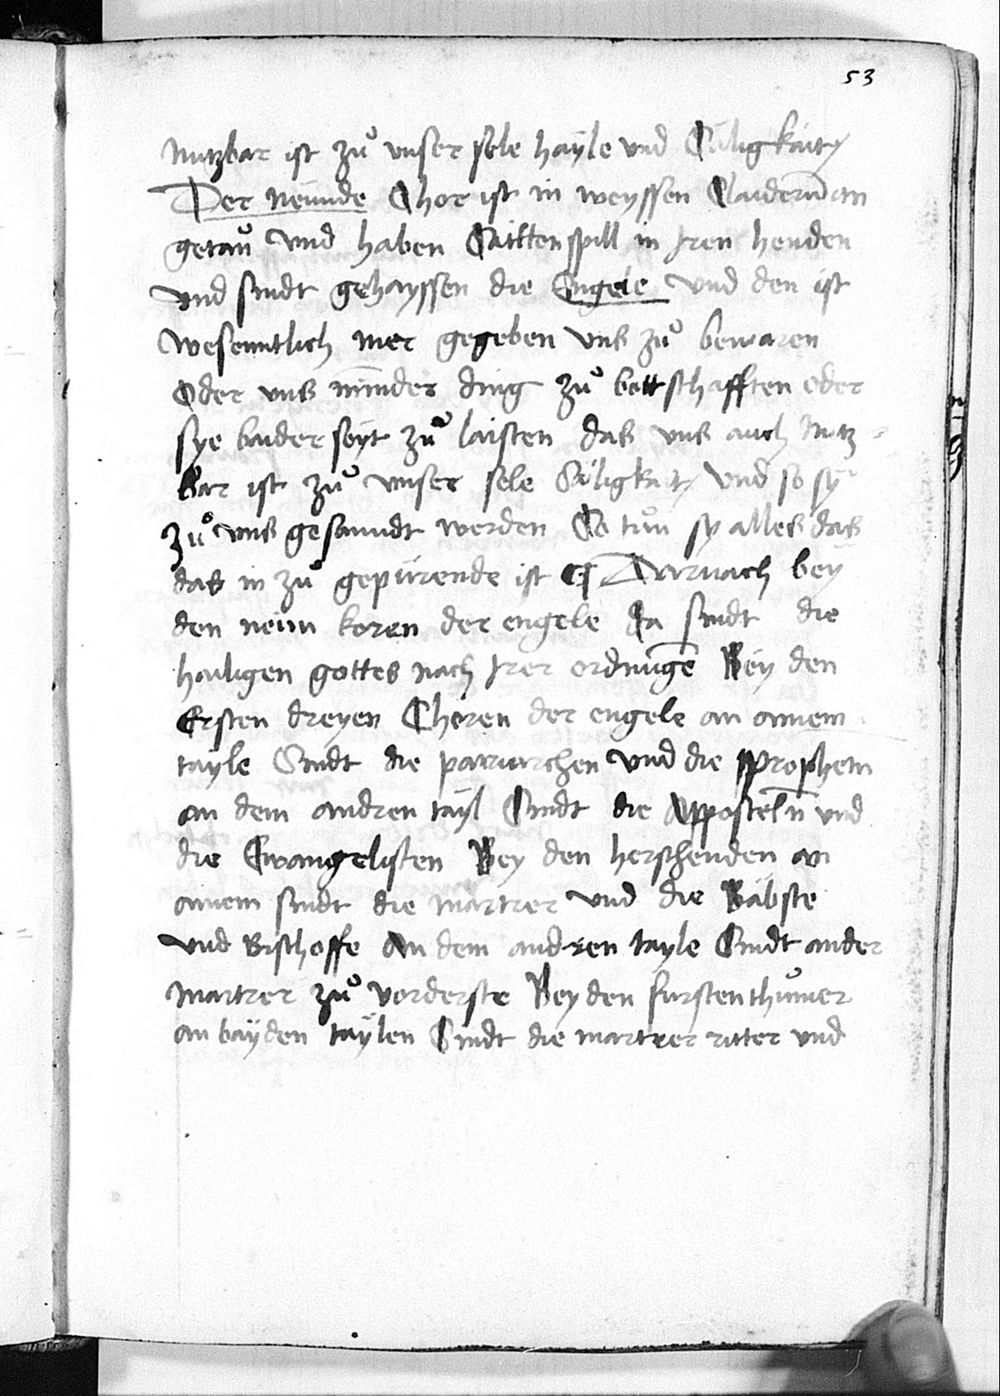 53
nutzbar ist zuͦ unser sele hayle und Säligkait
Der neunde Chor ist in weyssen Claidern̄ an
getaū und haben Saittenspill in Jren henden
und sindt gehayssen die Engele und den ist
wesenntlich mer gegeben uns zuͦ bewaren
Oder uns minder ding zuͦ bottschafften oder
sye baider seyt zuͦ laisten das uns auch Nutz
bar ist zuͦ unser sele Säligkait und so sy
zuͦ uns gesanndt werden So tuͦn sy alles das
das in zuͦ gepürende ist ¶ Darnach bey
den neun koren der engele Da sindt die
hailigen gottes nach Jrer ordnu̅ge Bey den
Ersten dreyen Choren der engele an ainem
tayle Sindt die patriarchen und die propheten
an dem andren tayl Sindt die Apposteln̄ und
die Ewangelisten Bey den herschenden an
ainem sindt die martrer und die Bäbste
und Bischoffe An dem andren tayle Sindt ander
martrer zuͦ vorderste Bey den furstenthuͦmer
an bayden taylen Sindt die martrer ritter und